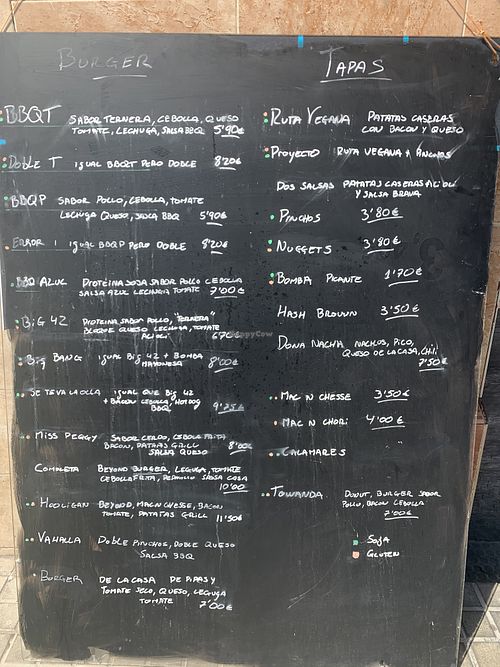 BURGER
BBQT SABOR TERNERA, CEBOLLA, QUESO
TOMATE, LECHUGA, SALSA BBQ 5'90€
DOBLE T IGUAL BBQT PERO DOBLE 8'20€
BBQP SABOR POLLO, CEBOLLA, TOMATE
LECHUGA QUESO, SALSA BBQ 5'90€
ERROR ! IGUAL BBQP PERO DOBLE 8'20€
BBQ AZUL PROTEINA SOJA SABOR POLLO CEBOLLA
SALSA AZUL LECHUGA TOMATE 7'00€
BIG 42 PROTEINA SABOR POLLO, "TERNERA"
BLOQUE QUESO LECHUGA, TOMATE
ALIOLI 6'70€
BIG BANG IGUAL BIG 42 + BOMBA
MAYONESA 8'00€
SE TEVALAOLLA IGUAL QUE BIG 42
+ BACON CEBOLLA, HOTDOG
BBQ 9'75€
MISS PEGGY SABOR CERDO, CEBOLLA FRITA
BACON, PATATAS GRILL 8'00€
SALSA QUESO
COMPLETA BEYOND BURGER, LECHUGA, TOMATE
CEBOLLA FRITA, PEPINILLO SALSA CASA
10'00
HOOLIGAN BEYOND, MACNCHESSE, BACON
TOMATE, PATATAS GRILL 11'50€
VAHALLA DOBLE PINCHOS, DOBLE QUESO
SALSA BBQ
BURGER DE LA CASA DE PIPAS Y
TOMATE SECO, QUESO, LECHUGA
TOMATE 7'00€
TAPAS
RUTA VEGANA PATATAS CASERAS
CON BACON Y QUESO
PROYECTO RUTA VEGANA + PINCHOS
DOS SALSAS PATATAS CASERAS ALIOLI
Y SALSA BRAVA
PINCHOS 3'80€
NUGGETS 3'80€
BOMBA PICANTE 1'70€
HASH BROWN 3'50€
DOÑA NACHA NACHOS, PICO,
QUESO DE LA CASA, CHILI
7'50€
MAC N CHESSE 3'50€
MAC N CHORI 4'00€
CALAMARES "
TOWANDA DONUT, BURGER SABOR
POLLO, BACON CEBOLLA
7'00€
SOJA
GLUTEN
HappyCow